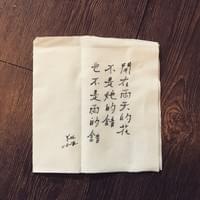 開在雨天的花
不是她的錯
也不是雨的錯